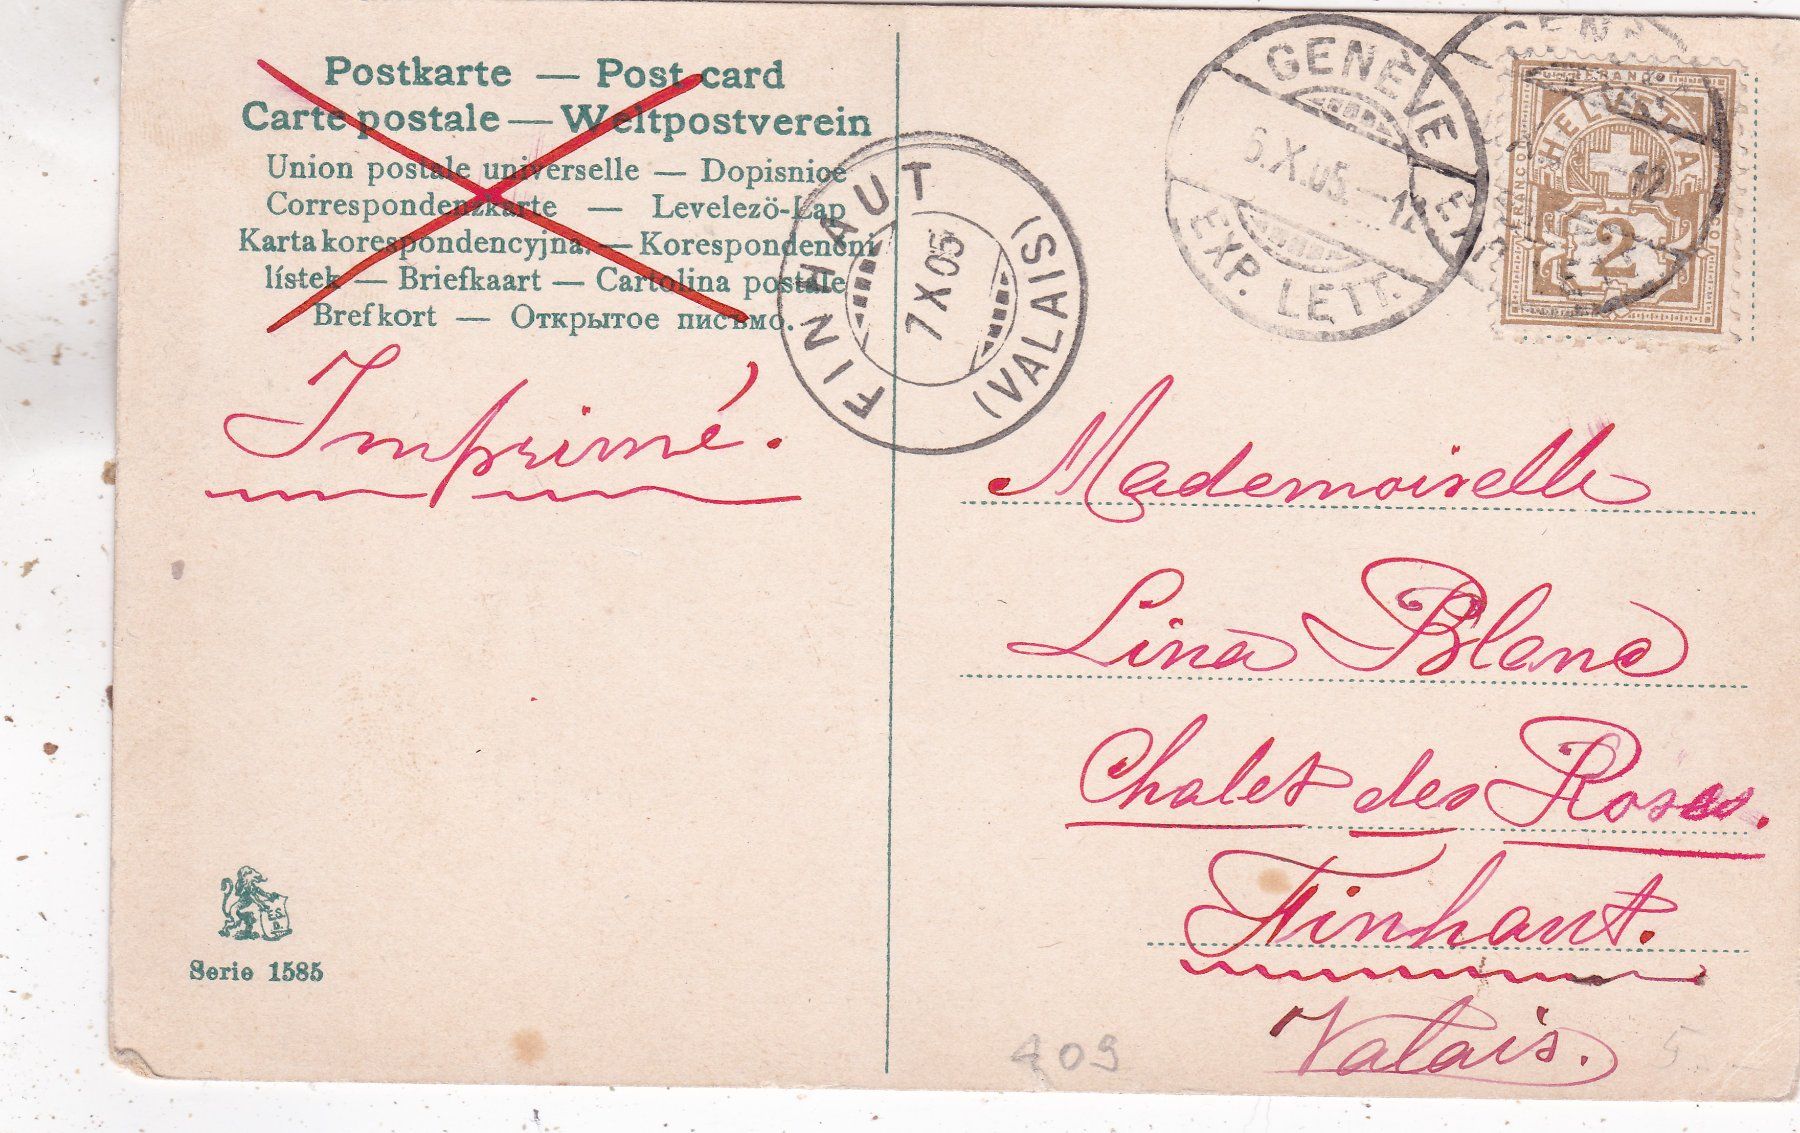 Postkarte — Post card
Carte postale — Weltpostverein
Union postale universelle — Dopisnice
Correspondenzkarte — Levelezö-Lap
Karta korespondencyjna. — Korespondenční
lístek — Briefkaart — Cartolina postale
Brefkort — Открытое письмо.
Imprimé.
FINHAUT
7 X 05
(VALAIS)
GENÈVE
6.X.05.–12
EXP. LETT.
FRANCO
HELVETIA
FRANCO
2
–12
Mademoiselle
Lina Blanc
Chalet des Roses.
Finhaut.
Valais.
E.S.
D.
Serie 1585
409
5